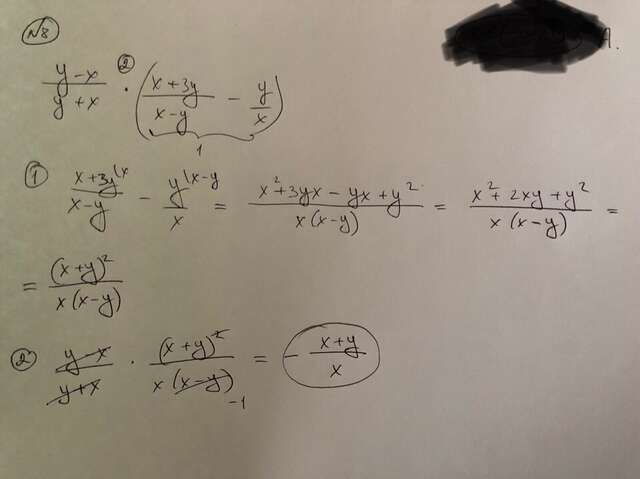 №8 A.
② (y-x)/(y+x) · ((x+3y)/(x-y) - y/x)
1
① (x+3y\x)/(x-y) - (y\x-y)/x = (x²+3yx-yx+y²)/(x(x-y)) = (x²+2xy+y²)/(x(x-y)) =
= (x+y)²/(x(x-y))
② (y-x)/(y+x) · (x+y)²/(x(x-y)) = - (x+y)/x
-1